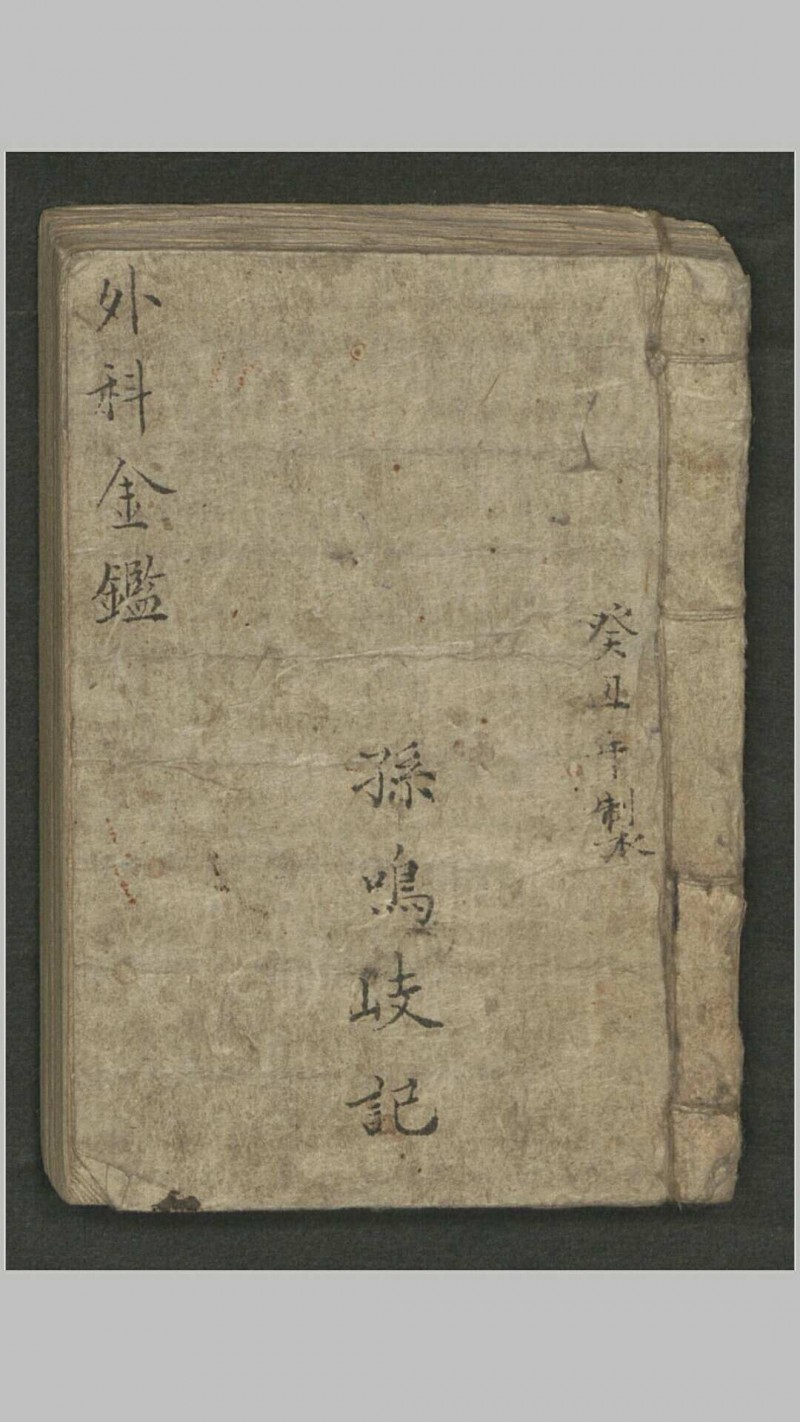 癸丑年製
孫鳴岐記
外科金鑑